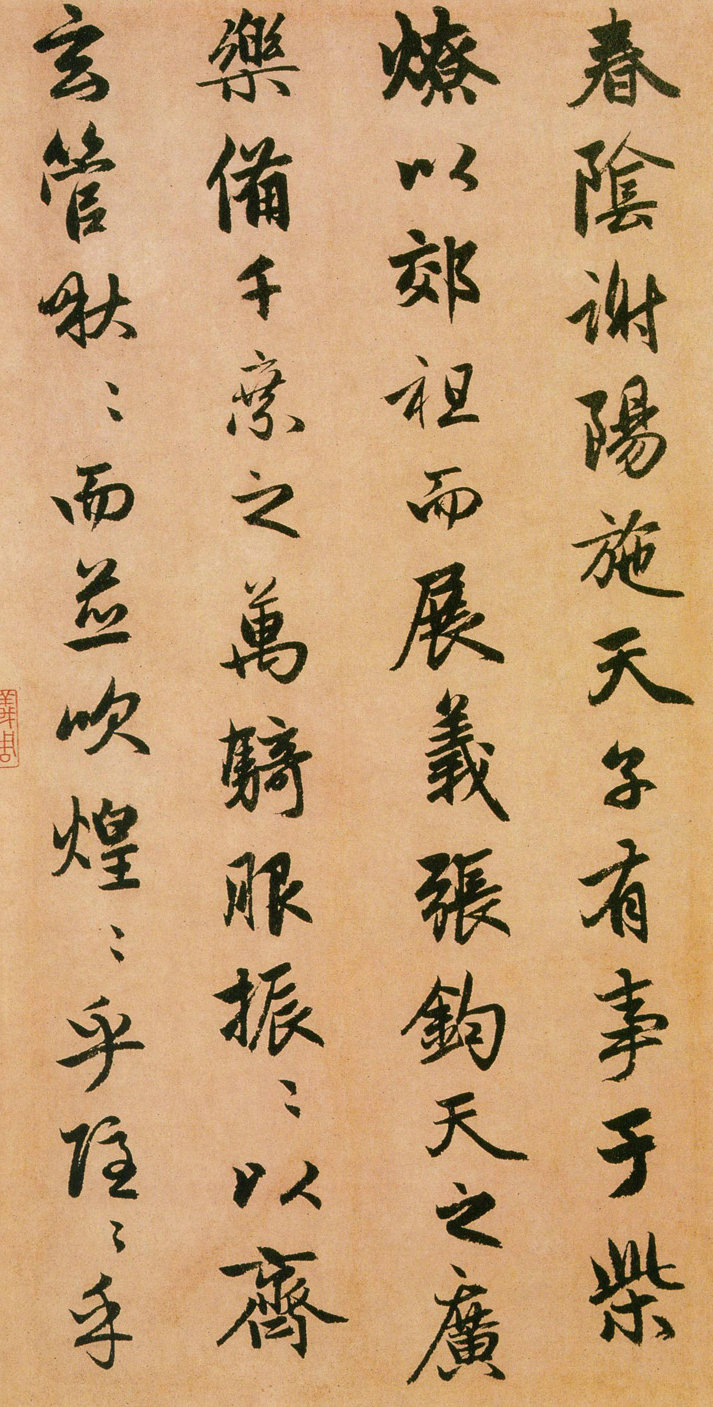 春陰謝陽施天子有事于柴
燎以郊祖而展義張鈞天之廣
樂備千乘之萬騎服振〻以齊
玄管啾〻而並吹煌〻乎隱〻乎